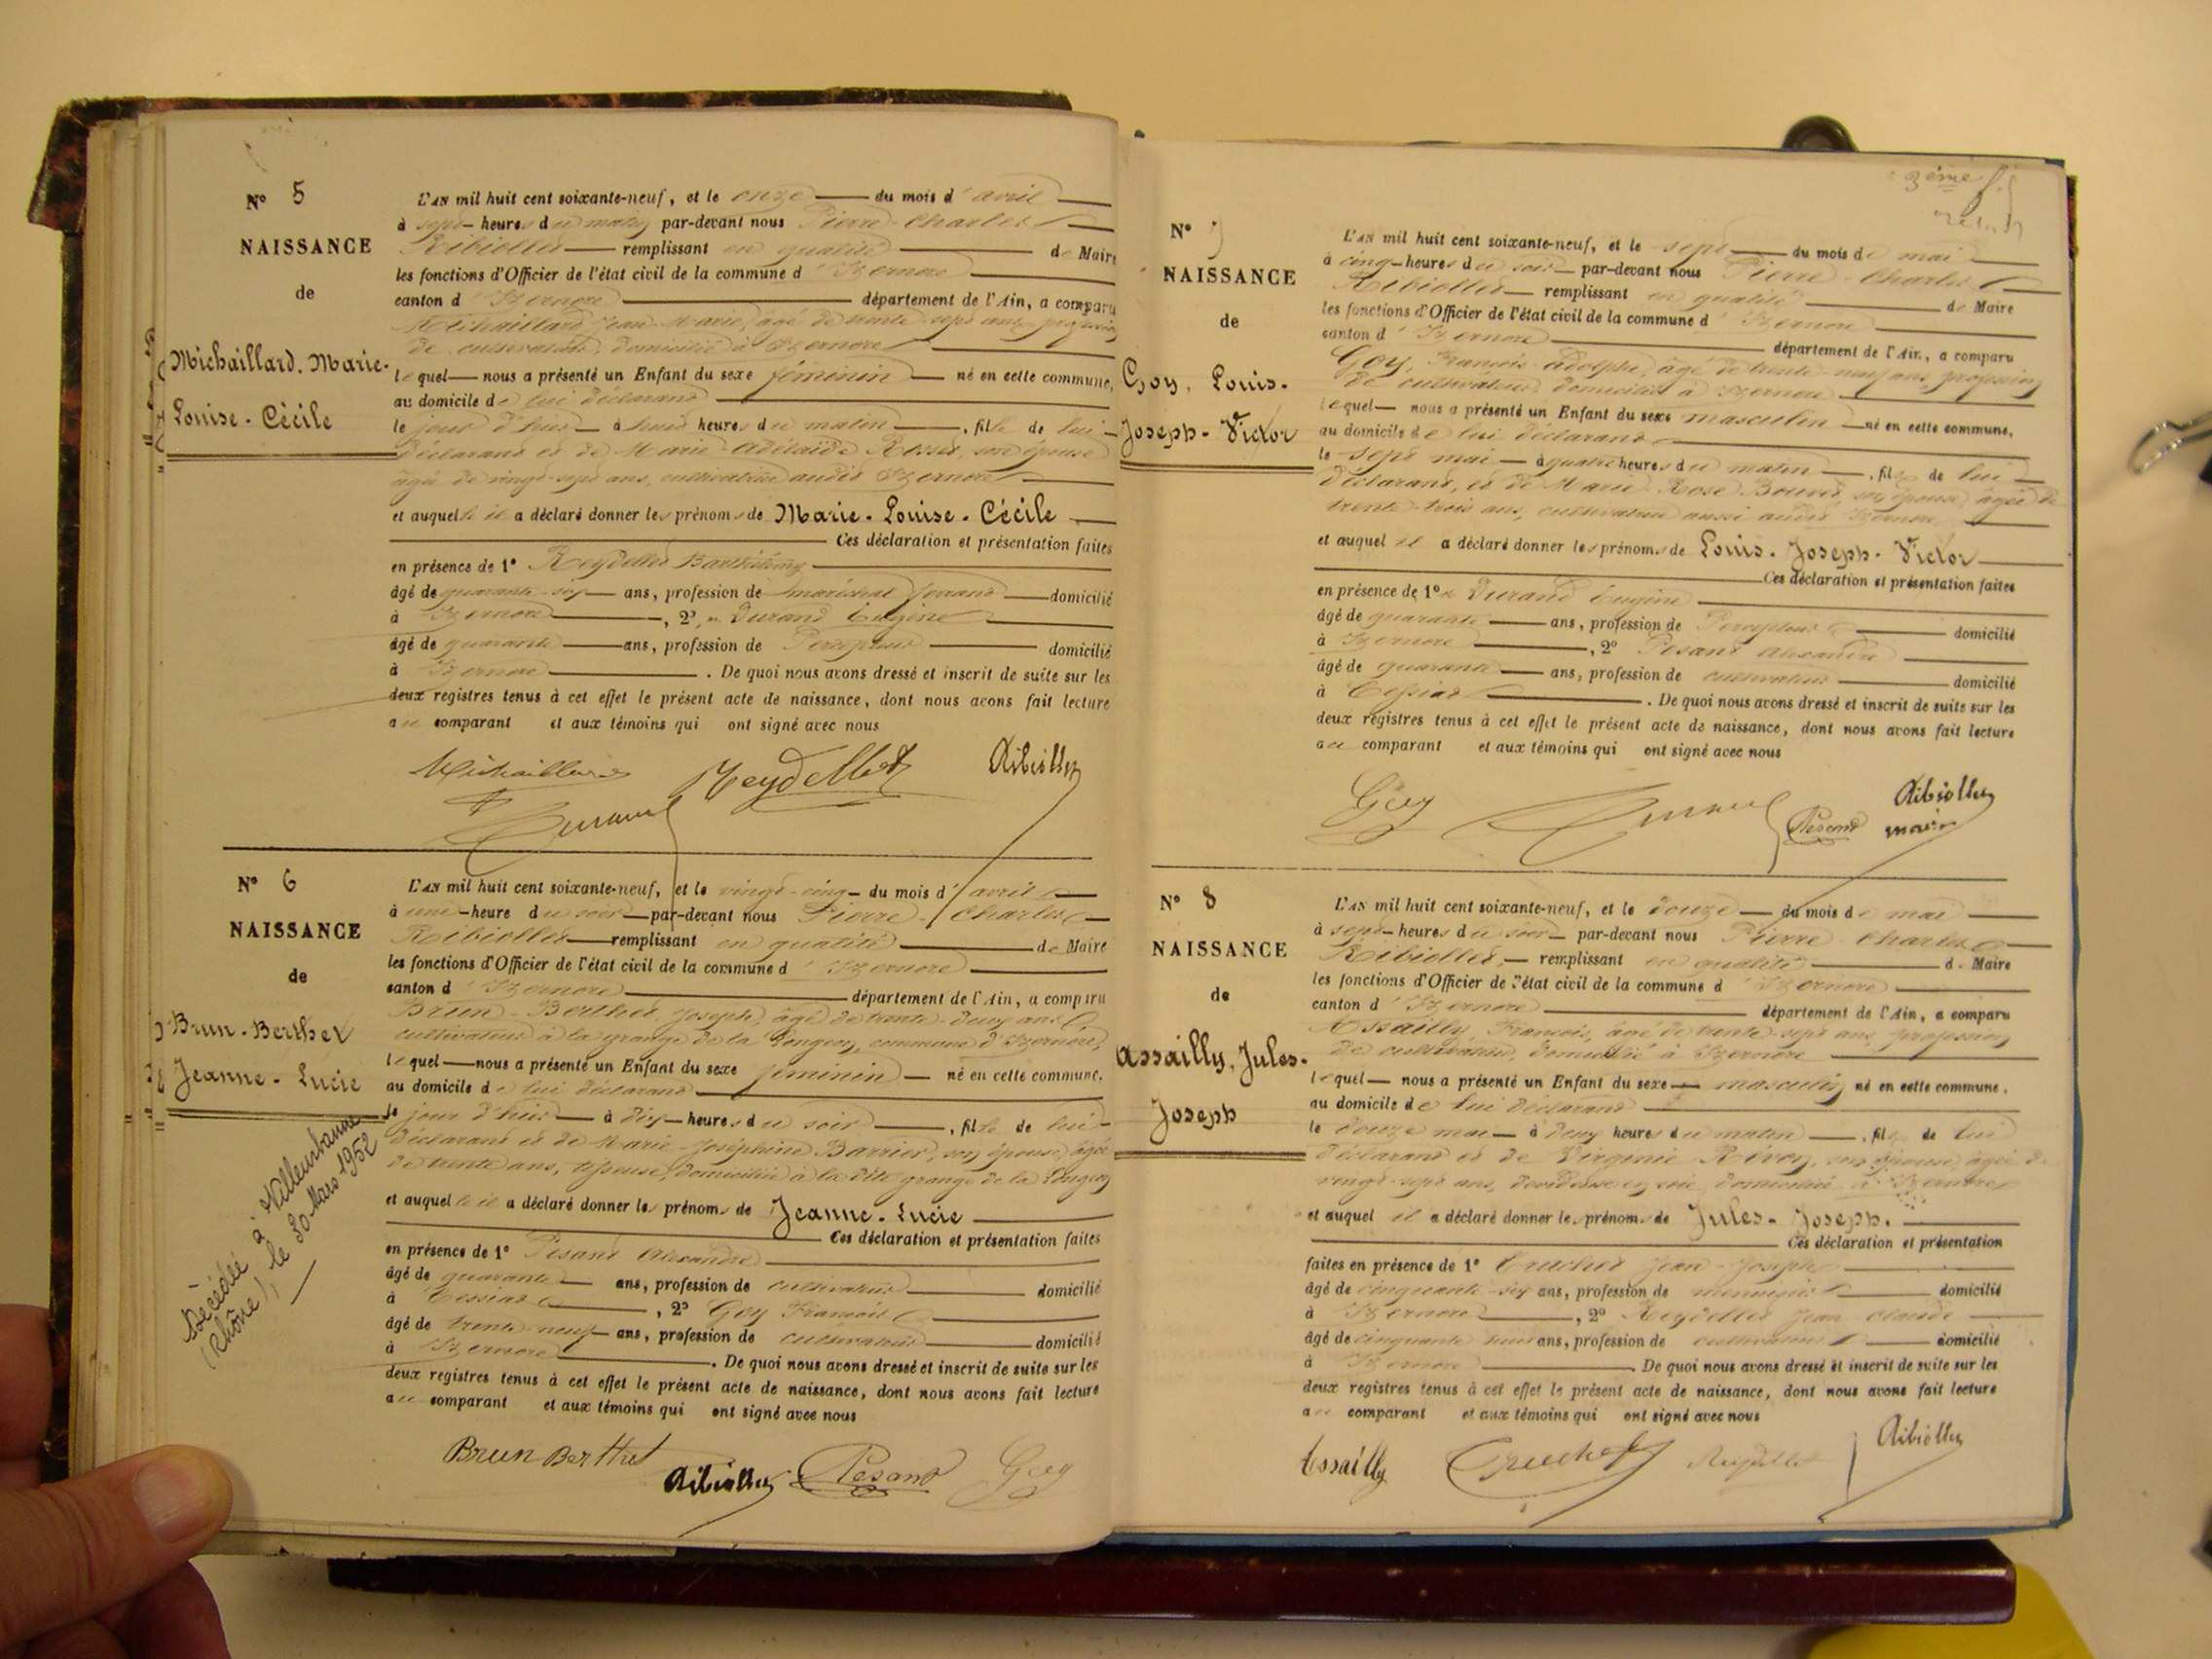 N° 5
NAISSANCE
de
Michaillard. Marie-
Louise - Cécile
L'AN mil huit cent soixante-neuf, et le onze du mois d'avril
à sept heures du matin par-devant nous Pierre-Charles
Ribiollet remplissant en qualité de Maire
les fonctions d'Officier de l'état civil de la commune d'Izernore
canton d'Izernore département de l'Ain, a comparu
Michaillard Jean-Marie, âgé de trente sept ans, profession
de cultivateur, domicilié à Izernore
lequel nous a présenté un Enfant du sexe féminin né en cette commune,
au domicile de lui déclarant
le jour d'hier à huit heures du matin, fille de lui
déclarant et de Marie-Adélaïde Rosset, son épouse
âgée de vingt-sept ans, cultivatrice audit Izernore
et auquelle il a déclaré donner les prénoms de Marie-Louise-Cécile
Ces déclaration et présentation faites
en présence de 1° Reydellet Barthélemy
âgé de quarante-six ans, profession de maréchal ferrant domicilié
à Izernore, 2° Durand Eugène
âgé de quarante ans, profession de Percepteur domicilié
à Izernore. De quoi nous avons dressé et inscrit de suite sur les
deux registres tenus à cet effet le présent acte de naissance, dont nous avons fait lecture
au comparant et aux témoins qui ont signé avec nous
Michaillard Reydellet Ribiollet
Durand
N° 6
NAISSANCE
de
Brun-Berthet
Jeanne-Lucie
Décédée à Villeurbanne
(Rhône), le 30 Mars 1952
L'AN mil huit cent soixante-neuf, et le vingt-cinq du mois d'avril
à une heure du soir par-devant nous Pierre-Charles
Ribiollet remplissant en qualité de Maire
les fonctions d'Officier de l'état civil de la commune d'Izernore
canton d'Izernore département de l'Ain, a comparu
Brun-Berthet, Joseph, âgé de trente-deux ans
cultivateur à la grange de la commune d'Izernore,
lequel nous a présenté un Enfant du sexe féminin né en cette commune,
au domicile de lui déclarant
le jour d'hier à dix heures du soir, fille de lui
déclarant et de Marie-Joséphine Barrier, son épouse, âgée
de trente ans, domiciliée à la dite grange de la
et auquelle il a déclaré donner les prénoms de Jeanne-Lucie
Ces déclaration et présentation faites
en présence de 1° Pesant Alexandre
âgé de quarante ans, profession de cultivateur domicilié
à Tessiat, 2° Goy François
âgé de trente-neuf ans, profession de cultivateur domicilié
à Izernore. De quoi nous avons dressé et inscrit de suite sur les
deux registres tenus à cet effet le présent acte de naissance, dont nous avons fait lecture
au comparant et aux témoins qui ont signé avec nous
Brun Berthet Ribiollet Pesant Goy
3ème
N° 7
NAISSANCE
de
Goy, Louis-
Joseph-Victor
L'AN mil huit cent soixante-neuf, et le sept du mois de mai
à cinq heures du soir par-devant nous Pierre-Charles
Ribiollet remplissant en qualité de Maire
les fonctions d'Officier de l'état civil de la commune d'Izernore
canton d'Izernore département de l'Ain, a comparu
Goy, François-Adolphe, âgé de trente-neuf ans, profession
de cultivateur, domicilié à Izernore
lequel nous a présenté un Enfant du sexe masculin né en cette commune,
au domicile de lui déclarant
le sept mai à quatre heures du matin, fils de lui
déclarant, et de Marie-Rose Bouvet, son épouse, âgée de
trente-trois ans, cultivatrice aussi audit Izernore
et auquel il a déclaré donner les prénoms de Louis-Joseph-Victor
Ces déclaration et présentation faites
en présence de 1° Durand Eugène
âgé de quarante ans, profession de Percepteur domicilié
à Izernore, 2° Pesant Alexandre
âgé de quarante ans, profession de cultivateur domicilié
à Tessiat. De quoi nous avons dressé et inscrit de suite sur les
deux registres tenus à cet effet le présent acte de naissance, dont nous avons fait lecture
au comparant et aux témoins qui ont signé avec nous
Goy Durand Pesant Ribiollet
maire
N° 8
NAISSANCE
de
Assailly, Jules-
Joseph
L'AN mil huit cent soixante-neuf, et le douze du mois de mai
à sept heures du soir par-devant nous Pierre-Charles
Ribiollet, remplissant en qualité de Maire
les fonctions d'Officier de l'état civil de la commune d'Izernore
canton d'Izernore département de l'Ain, a comparu
Assailly, François, âgé de trente-sept ans, profession
de cultivateur, domicilié à Izernore
lequel nous a présenté un Enfant du sexe masculin né en cette commune,
au domicile de lui déclarant
le douze mai à deux heures du matin, fils de lui
déclarant et de Virginie Révoy, son épouse, âgée de
vingt-sept ans, dévideuse en soie, domiciliée à Izernore
et auquel il a déclaré donner les prénoms de Jules-Joseph.
Ces déclaration et présentation
faites en présence de 1° Cruchet Jean-Joseph
âgé de cinquante-six ans, profession de menuisier domicilié
à Izernore, 2° Reydellet Jean Claude
âgé de cinquante huit ans, profession de cultivateur domicilié
à Izernore. De quoi nous avons dressé et inscrit de suite sur les
deux registres tenus à cet effet le présent acte de naissance, dont nous avons fait lecture
au comparant et aux témoins qui ont signé avec nous
Assailly Cruchet Reydellet Ribiollet